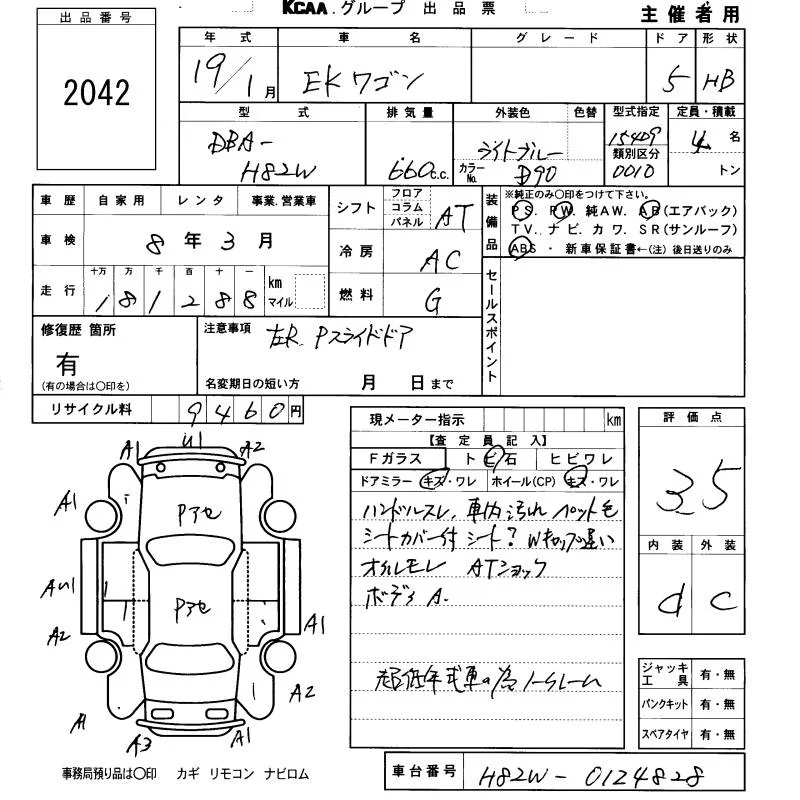 KCAA.グループ 出品票
主催者用
出品番号
2042
年式 車名 グレード ドア 形状
19/1月 EKワゴン 5 HB
型式 排気量 外装色 色替 型式指定 定員・積載
DBA-H82W 660c.c. ライトブルー カラーNo. D90 15409 類別区分 0010 4名 トン
車歴 自家用 レンタ 事業.営業車
車検 8年3月
走行 十万 万 千 百 十 一 km マイル
181288
シフト フロア コラム パネル AT
冷房 AC
燃料 G
装備品 ※純正のみ○印をつけて下さい。
PS. PW. 純AW. AB(エアバック)
TV. ナビ. カワ. SR(サンルーフ)
ABS・新車保証書←(注)後日送りのみ
セールスポイント
修復歴 箇所
有
(有の場合は○印を)
注意事項 左R Pスライドドア
名変期日の短い方 月 日まで
リサイクル料 9460円
現メーター指示 km
【査定員記入】
Fガラス トビ石 ヒビワレ
ドアミラー キズ・ワレ ホイール(CP) キズ・ワレ
ハンドルスレ, 車内汚れ ペット毛
シートカバー付 シート? Wキャップ違い
オイルモレ ATショック
ボディ A.
超低年式車の為ノークレーム
評価点
3.5
内装 外装
d C
ジャッキ工具 有・無
パンクキット 有・無
スペアタイヤ 有・無
A1 U1 A2
A1 Pアセ
AU1 Pアセ A1
A2
A2
A A3 A1
事務局預り品は○印 カギ リモコン ナビロム
車台番号 H82W-0124828